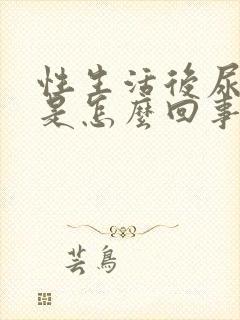 性生活後尿
是怎麼回事
芸鳥